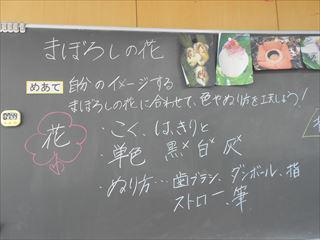 まぼろしの花
めあて 自分のイメージする
まぼろしの花に合わせて、色やぬり方を工夫しよう!
花
・こく、はっきりと
・単色 黒× 白× 灰×
・ぬり方…歯ブラシ、ダンボール、指
ストロー、筆